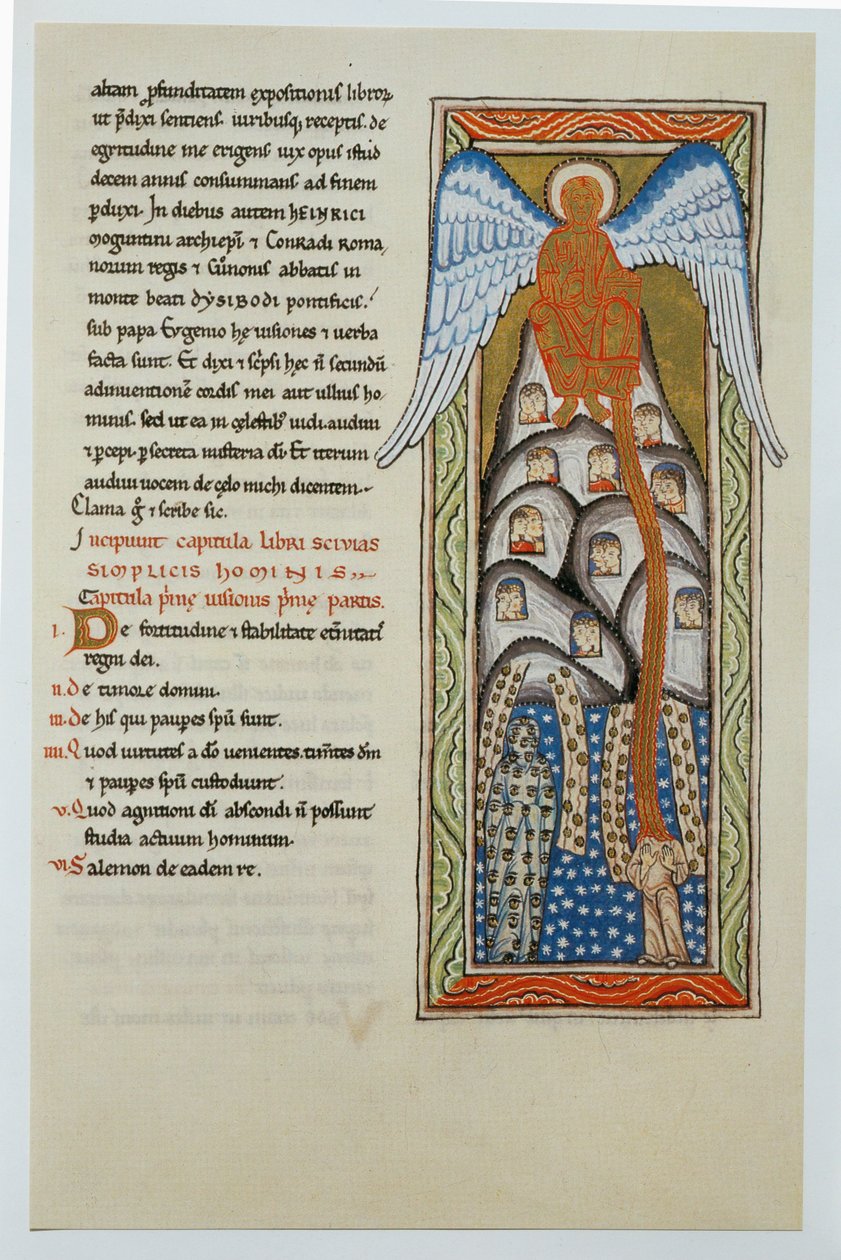 altam ꝓfunditatem expositionis libroꝝ
ut p̄dixi sentiens. uiribusq; receptis. de
egritudine me erigens uix opus istud
decem annis consummans. ad finem
ꝑduxi. In diebus autem hEINRICI
moguntini archiep̄i ⁊ Conradi Roma,
norum regis ⁊ Cūnonis abbatis in
monte beati DẎSIBODI pontificis.
sub papa Eugenio hę uisiones ⁊ uerba
facta sunt. Et dixi ⁊ sc̄psi hęc n̄ secundū
adinuentionē cordis mei aut ullius ho,
minis. sed ut ea in cęlestib; uidi. audiui
⁊ ꝑcepi. ꝑ secreta misteria dī. Et iterum
audiui uocem de cęlo michi dicentem.
Clama g̊ ⁊ scribe sic.
Incipiunt capitula libri scivias
simplicis hominis.
Capitula p̄mę uisionis p̄mę partis.
i. De fortitudine ⁊ stabilitate et̄nitatis
regni dei.
ii. De timore domini.
iii. De his qui pauꝑes sp̄u sunt.
iiii. Quod uirtutes a dō uenientes. tim̄tes dm̄
⁊ pauꝑes sp̄u custodiunt.
v. Quod agnitioni dī abscondi n̄ possunt
studia actuum hominum.
vi. Salemon de eadem re.